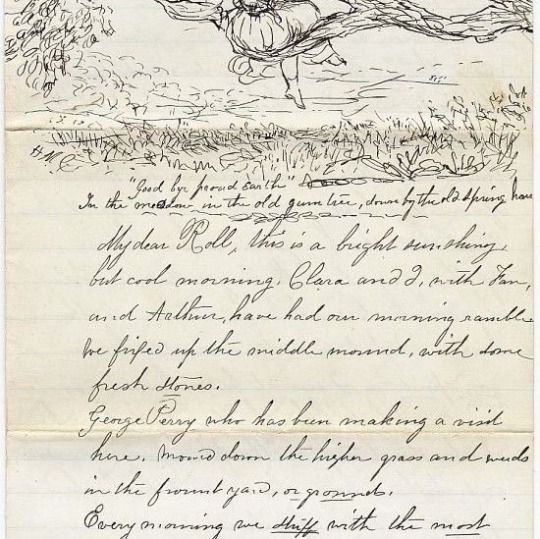 H.W.E.
"Good bye proud Earth"
In the meadow in the old gum tree, down by the old spring
My dear Roll, this is a bright sunshiny,
but cool morning. Clara and I, with Fan,
and Arthur, have had our morning ramble
We fixed up the middle mound, with some
fresh stones.
George Perry who has been making a visit
here. mowed down the higher grass and weeds
in the frount yard, or grounds.
Every morning we stuff with the most